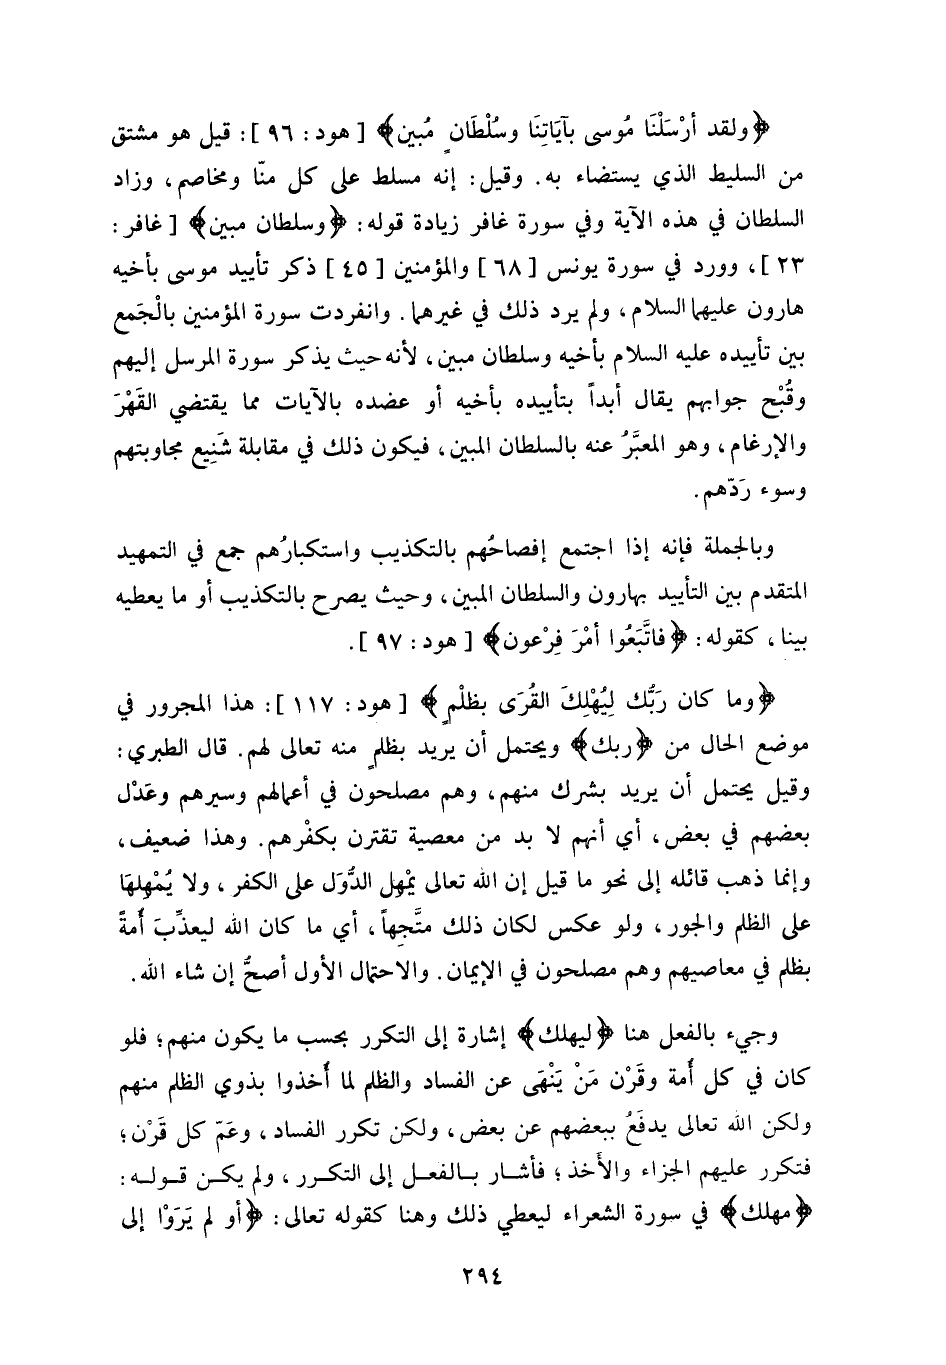 ﴿ولقد أرْسَلْنَا مُوسى بآيَاتِنَا وسُلْطَانٍ مُبين﴾ [هود: ٩٦]: قيل هو مشتق
من السليط الذي يستضاء به. وقيل: إنه مسلط على كل منّا ومخاصم، وزاد
السلطان في هذه الآية وفي سورة غافر زيادة قوله: ﴿وسلطان مبين﴾ [غافر:
٢٣]، وورد في سورة يونس [٦٨] والمؤمنين [٤٥] ذكر تأييد موسى بأخيه
هارون عليهما السلام، ولم يرد ذلك في غيرهما. وانفردت سورة المؤمنين بالْجَمع
بين تأييده عليه السلام بأخيه وسلطان مبين، لأنه حيث يذكر سورة المرسل إليهم
وقُبْح جوابهم يقال أبداً بتأييده بأخيه أو عضده بالآيات مما يقتضي القَهْرَ
والإرغام، وهو المعبَّرُ عنه بالسلطان المبين، فيكون ذلك في مقابلة شَنِيع مجاوبتهم
وسوء رَدّهم.
وبالجملة فإنه إذا اجتمع إفصاحُهم بالتكذيب واستكبارُهم جمع في التمهيد
المتقدم بين التأييد بهارون والسلطان المبين، وحيث يصرح بالتكذيب أو ما يعطيه
بينا، كقوله: ﴿فاتَّبَعُوا أمْرَ فِرْعون﴾ [هود: ٩٧].
﴿وما كان رَبُّك لِيُهْلِكَ القُرَى بظلْمٍ﴾ [هود: ١١٧]: هذا المجرور في
موضع الحال من ﴿ربك﴾ ويحتمل أن يريد بظلمٍ منه تعالى لهم. قال الطبري:
وقيل يحتمل أن يريد بشرك منهم، وهم مصلحون في أعمالهم وسيرهم وعَدْل
بعضهم في بعض، أي أنهم لا بد من معصية تقترن بكفْرهم. وهذا ضعيف،
وإنما ذهب قائله إلى نحو ما قيل إن الله تعالى يمْهِل الدُّوَل على الكفر، ولا يُمْهِلهَا
على الظلم والجور، ولو عكس لكان ذلك متَّجهاً، أي ما كان الله ليعذِّبَ أُمةً
بظلم في معاصيهم وهم مصلحون في الإيمان. والاحتمال الأول أصحُّ إن شاء الله.
وجيء بالفعل هنا ﴿ليهلك﴾ إشارة إلى التكرر بحسب ما يكون منهم؛ فلو
كان في كل أُمة وقَرْن مَنْ يَنْهَى عن الفساد والظلم لما أُخذوا بذوي الظلم منهم
ولكن الله تعالى يدفَعُ ببعضهم عن بعض، ولكن تكرر الفساد، وعَمّ كل قَرْن؛
فتكرر عليهم الجزاء والأَخذ؛ فأشار بالفعل إلى التكرر، ولم يكن قوله:
﴿مهلك﴾ في سورة الشعراء ليعطي ذلك وهنا كقوله تعالى: ﴿أو لم يَرَوْا إلى
٢٩٤